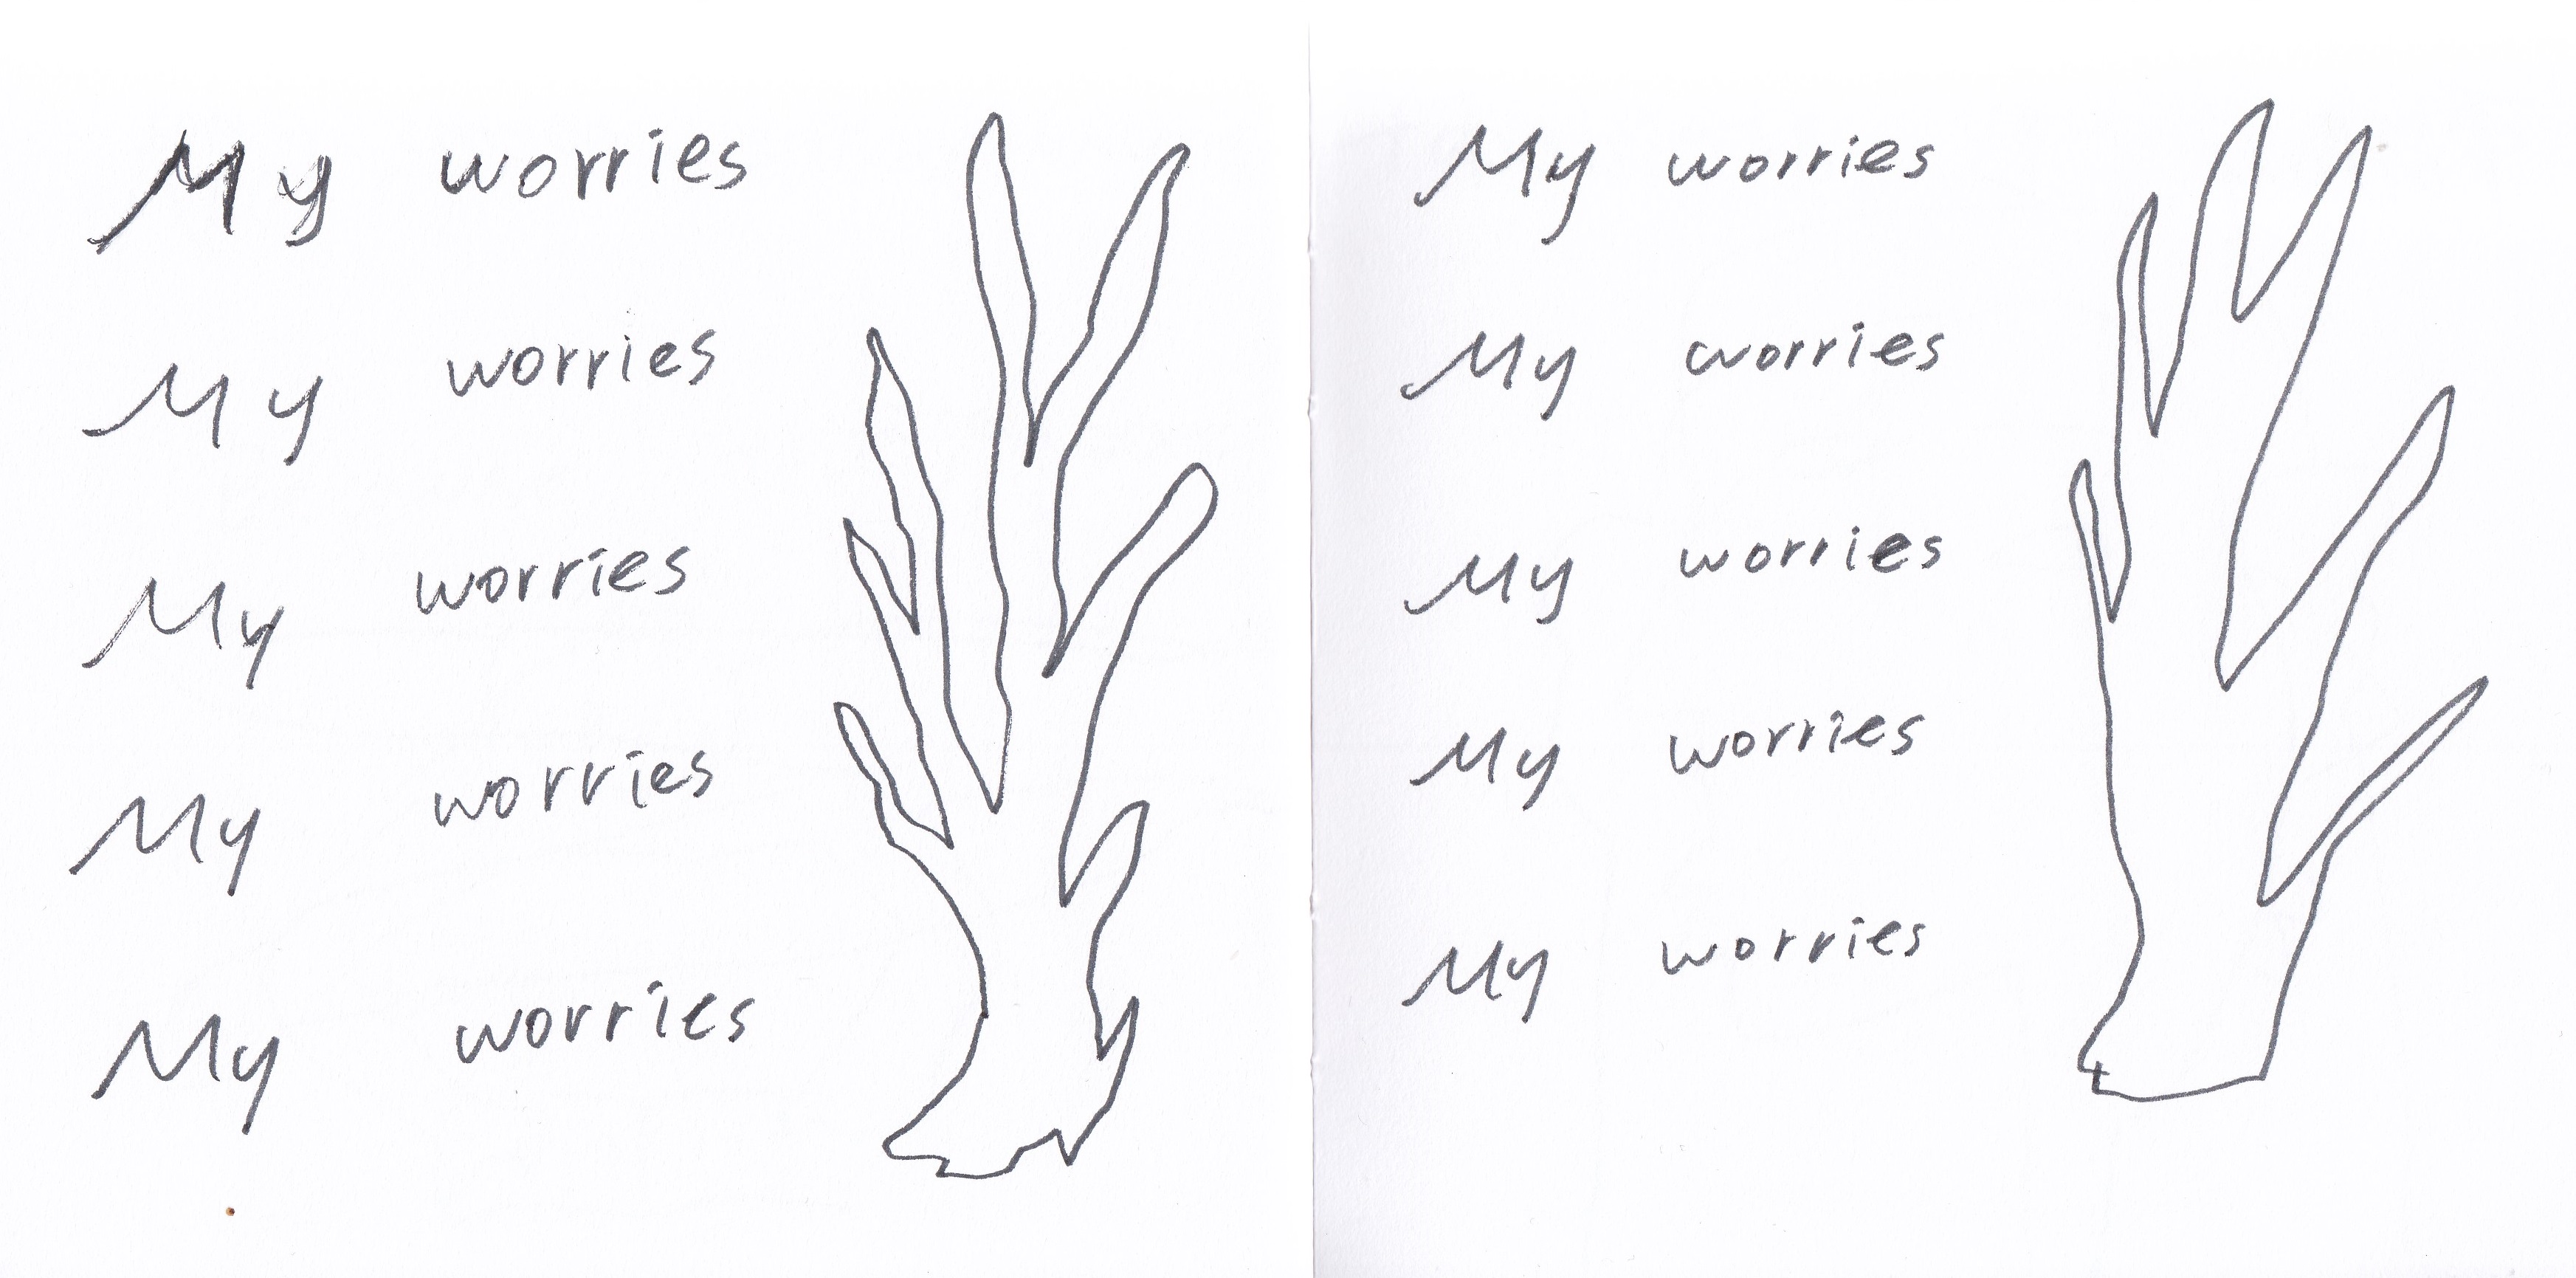 My worries
My worries
My worries
My worries
My worries
My worries
My worries
My worries
My worries
My worries